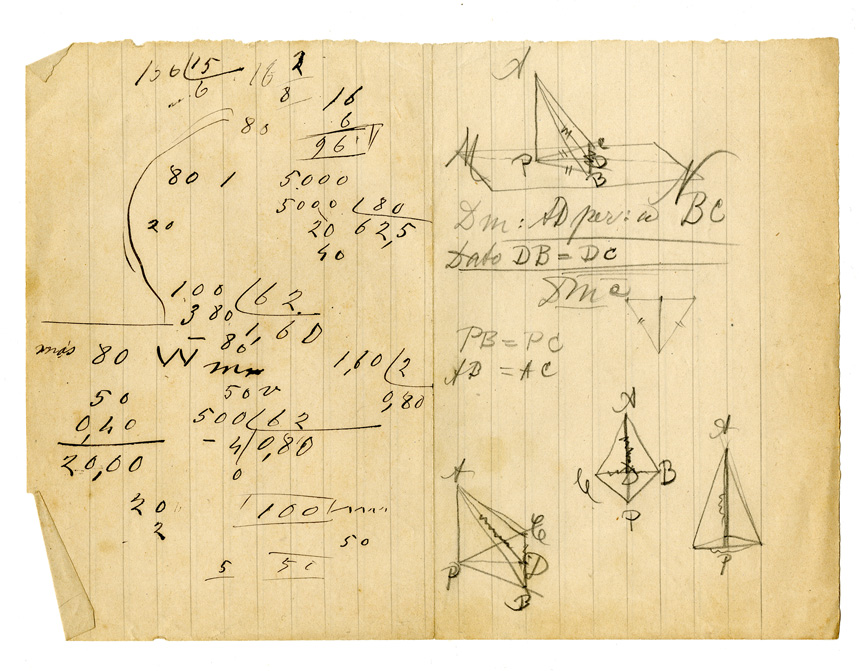 106 15
6
16 2
8
16
80
6
96
80 1 5000
5000 80
20
20 62,5
40
100 62
380 1,60
80
80 W
1,60 2
0,80
50
50v
0,40
500 62
20,00
4 0,80
0
20
2
100
50
5 50
A
M P C D B N
Dm: AD per: a BC
Dato DB = DC
Dm e
PB = PC
AB = AC
A
C D B
P
A
P
A
C
P D
B